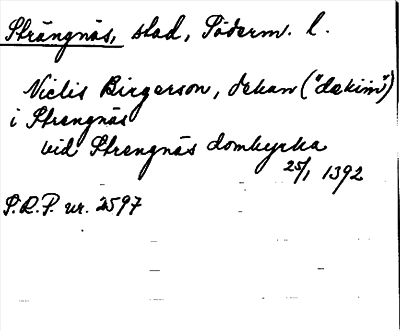 Strängnäs, stad, Söderm. l.
Niclis Birgerson, dekan ("dekin")
i Strengnäs
vid Strengnäs domkyrka
25/1 1392
S.R.P. nr. 2597